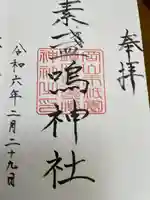 奉拝
素盞嗚神社
令和六年二月二十九日